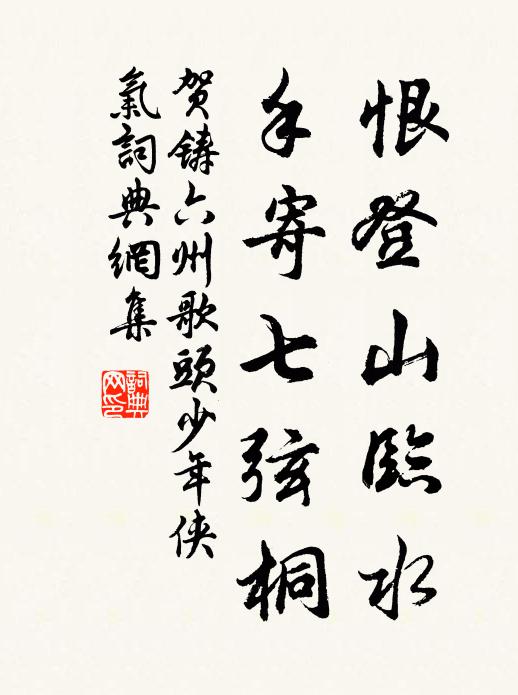 恨登山臨水
手寄七弦桐
贺鑄六州歌頭少年俠
氣詞典網集
詞典
网印